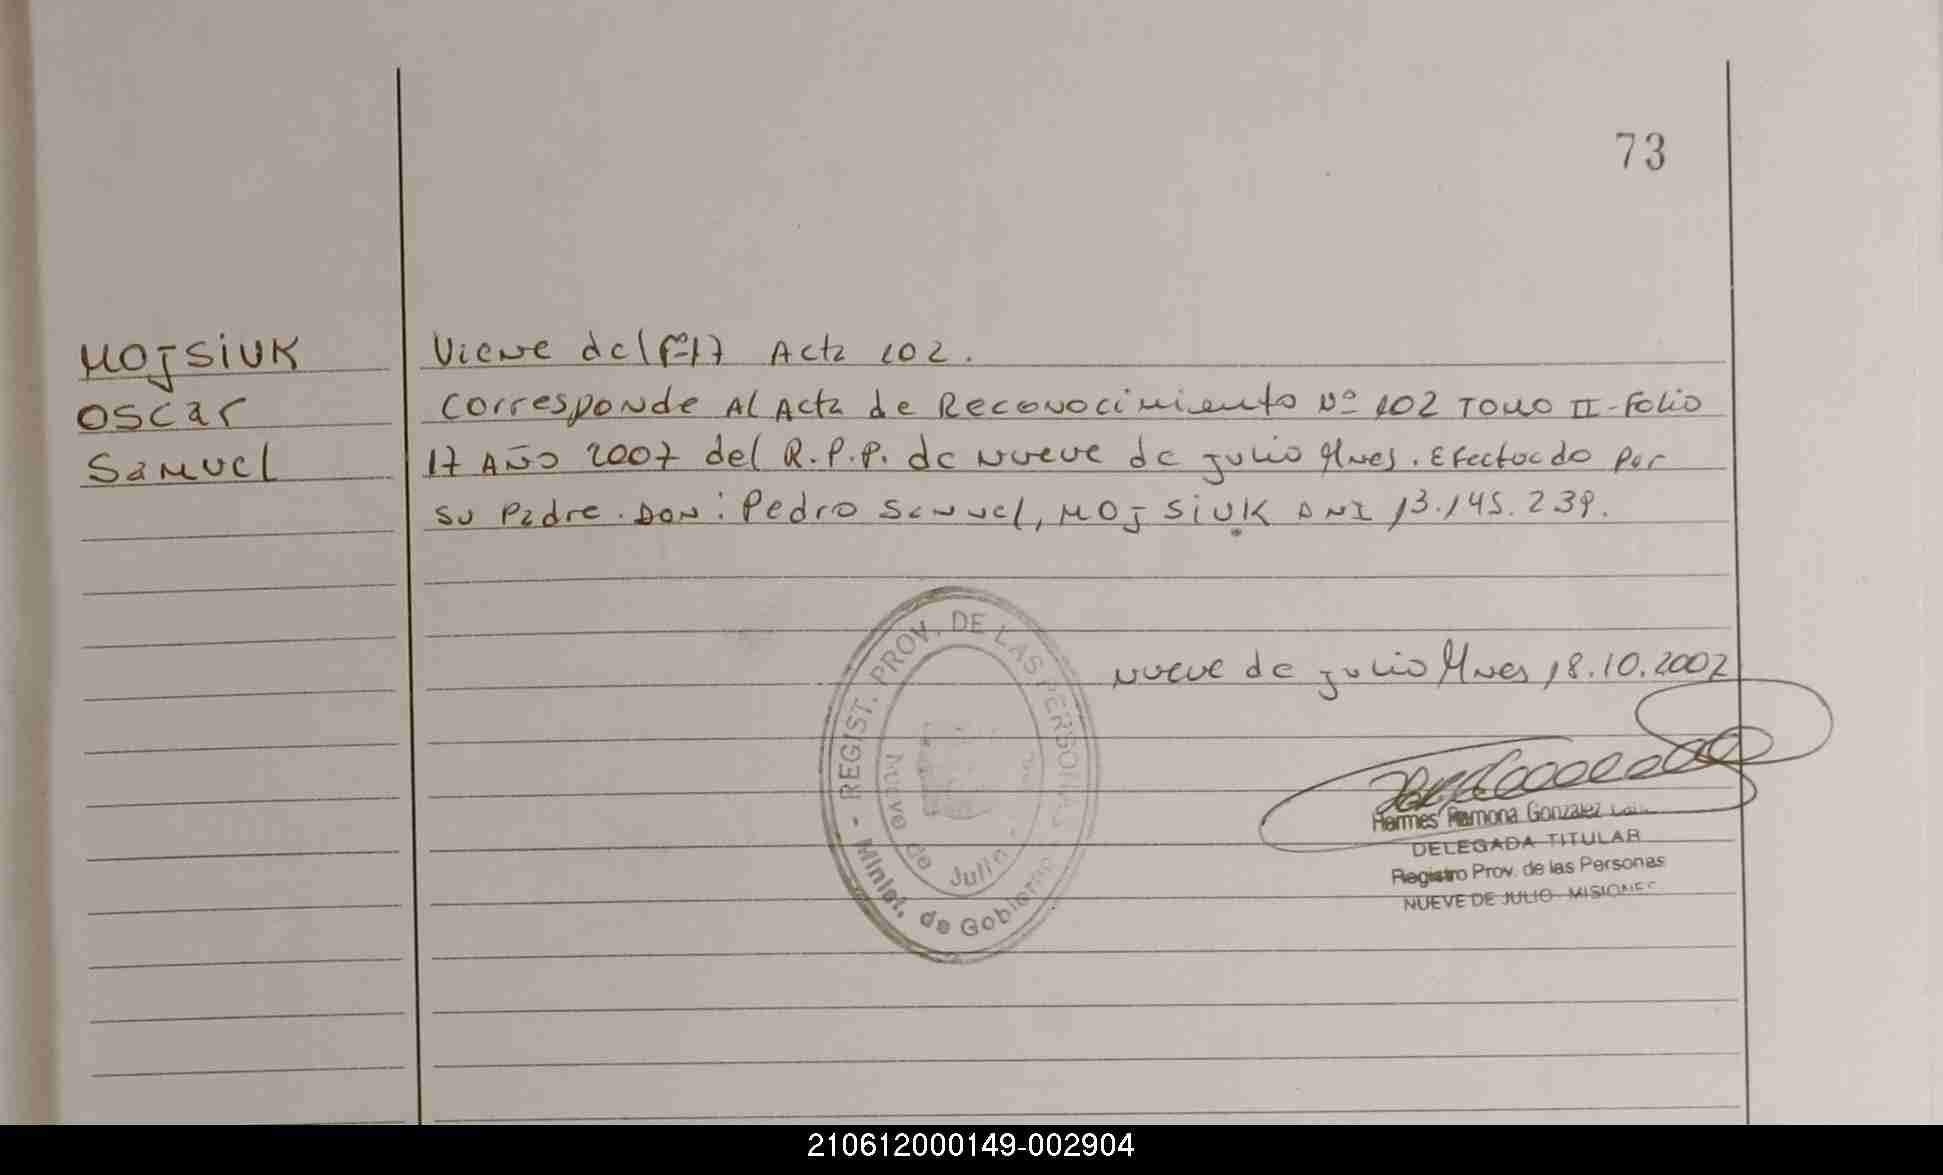 73
MOJSIUK
OSCAR
SAMUEL
Viene del Fº17 Acta 102.
Corresponde Al Acta de Reconocimiento Nº 102 TOMO II-Folio
17 AÑO 2007 del R.P.P. de Nueve de Julio Mnes. Efectuado por
su Padre. DON: Pedro Samuel, MOJSIUK DNI 13.145.239.
Nueve de Julio Mnes 18.10.2007
- REGIST. PROV. DE LAS PERSONAS -
Minist. de Gobierno
Nueve de Julio
Hermes Ramona Gonzalez
DELEGADA TITULAR
Registro Prov. de las Personas
NUEVE DE JULIO - MISIONES
210612000149-002904